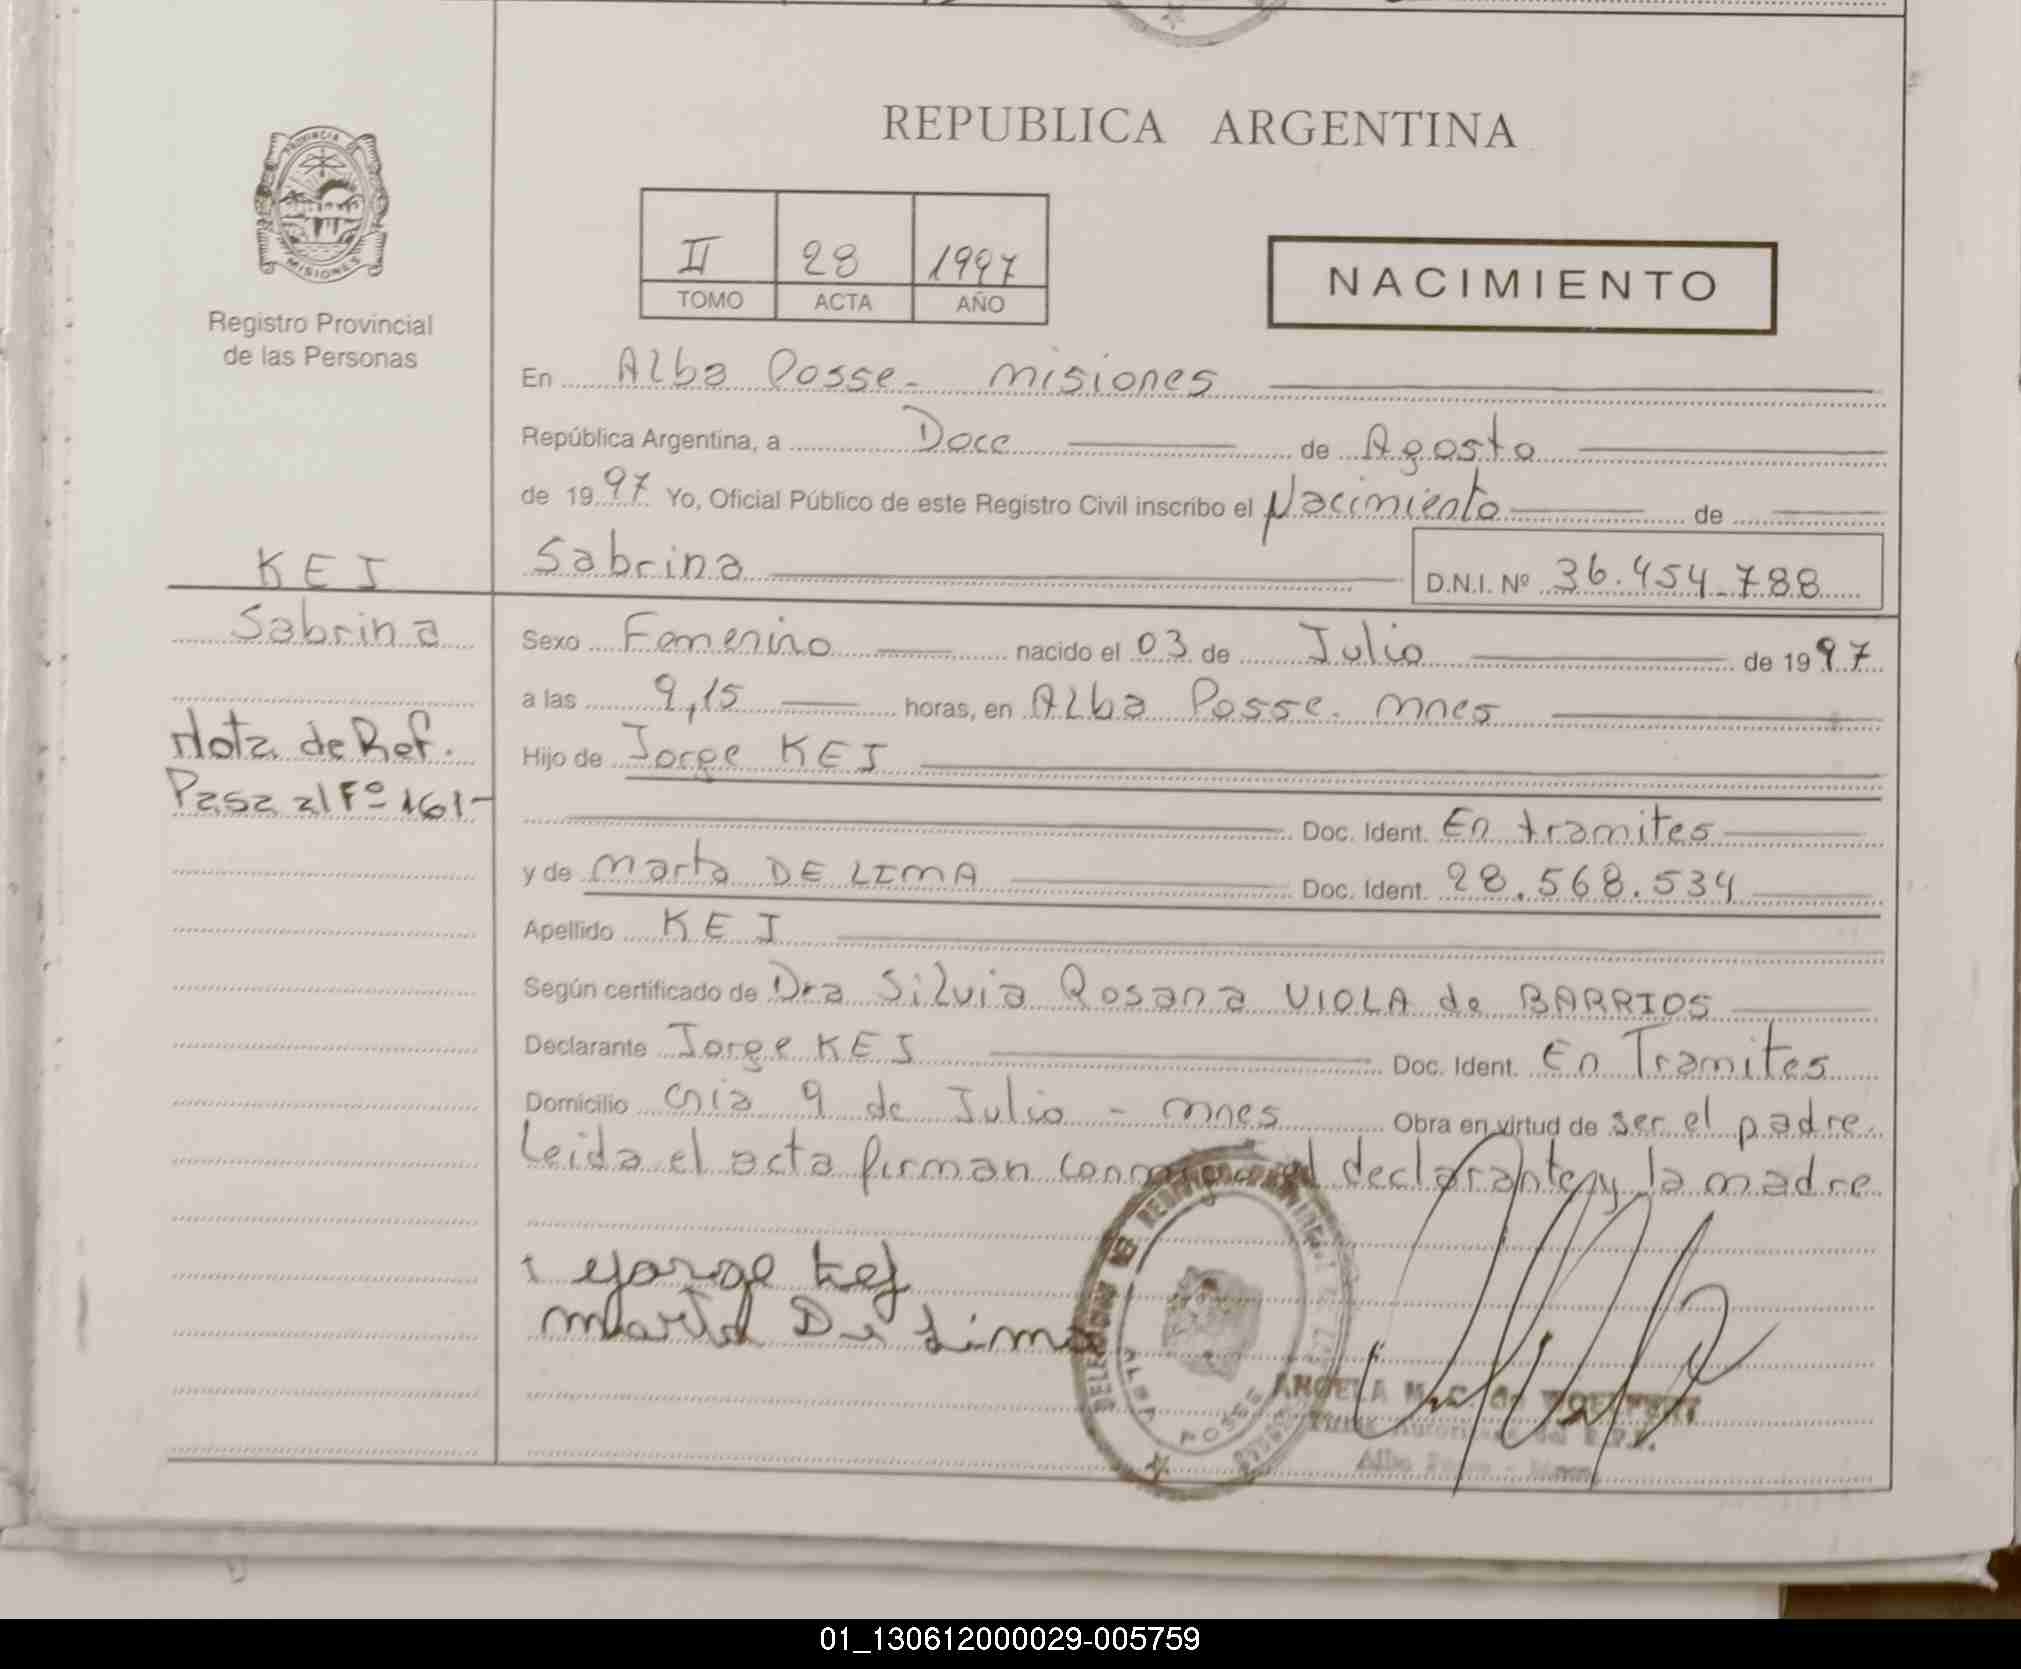 REPUBLICA ARGENTINA
PROVINCIA DE
MISIONES
Registro Provincial
de las Personas
II 28 1997
TOMO ACTA AÑO
NACIMIENTO
En Alba Posse - misiones
República Argentina, a Doce de Agosto
de 1997 Yo, Oficial Público de este Registro Civil inscribo el Nacimiento de
KEI
Sabrina
D.N.I. Nº 36.454.788
Sabrina
Sexo Femenino nacido el 03 de Julio de 1997
a las 9,15 horas, en Alba Posse. mnes
Nota de Ref.
Hijo de Jorge KEI
Pasa al Fº 161-
Doc. Ident. En tramites
y de Marta DE LIMA Doc. Ident. 28.568.534
Apellido KEI
Según certificado de Dra Silvia Rosana VIOLA de BARRIOS
Declarante Jorge KEI Doc. Ident. En Tramites
Domicilio Cnia 9 de Julio - mnes Obra en virtud de ser el padre.
Leida el acta firman conmigo el declarante y la madre
Marta De Lima
ALBA POSSE
ANGELA M. C. de
Alba Posse - Mnes
01_130612000029-005759